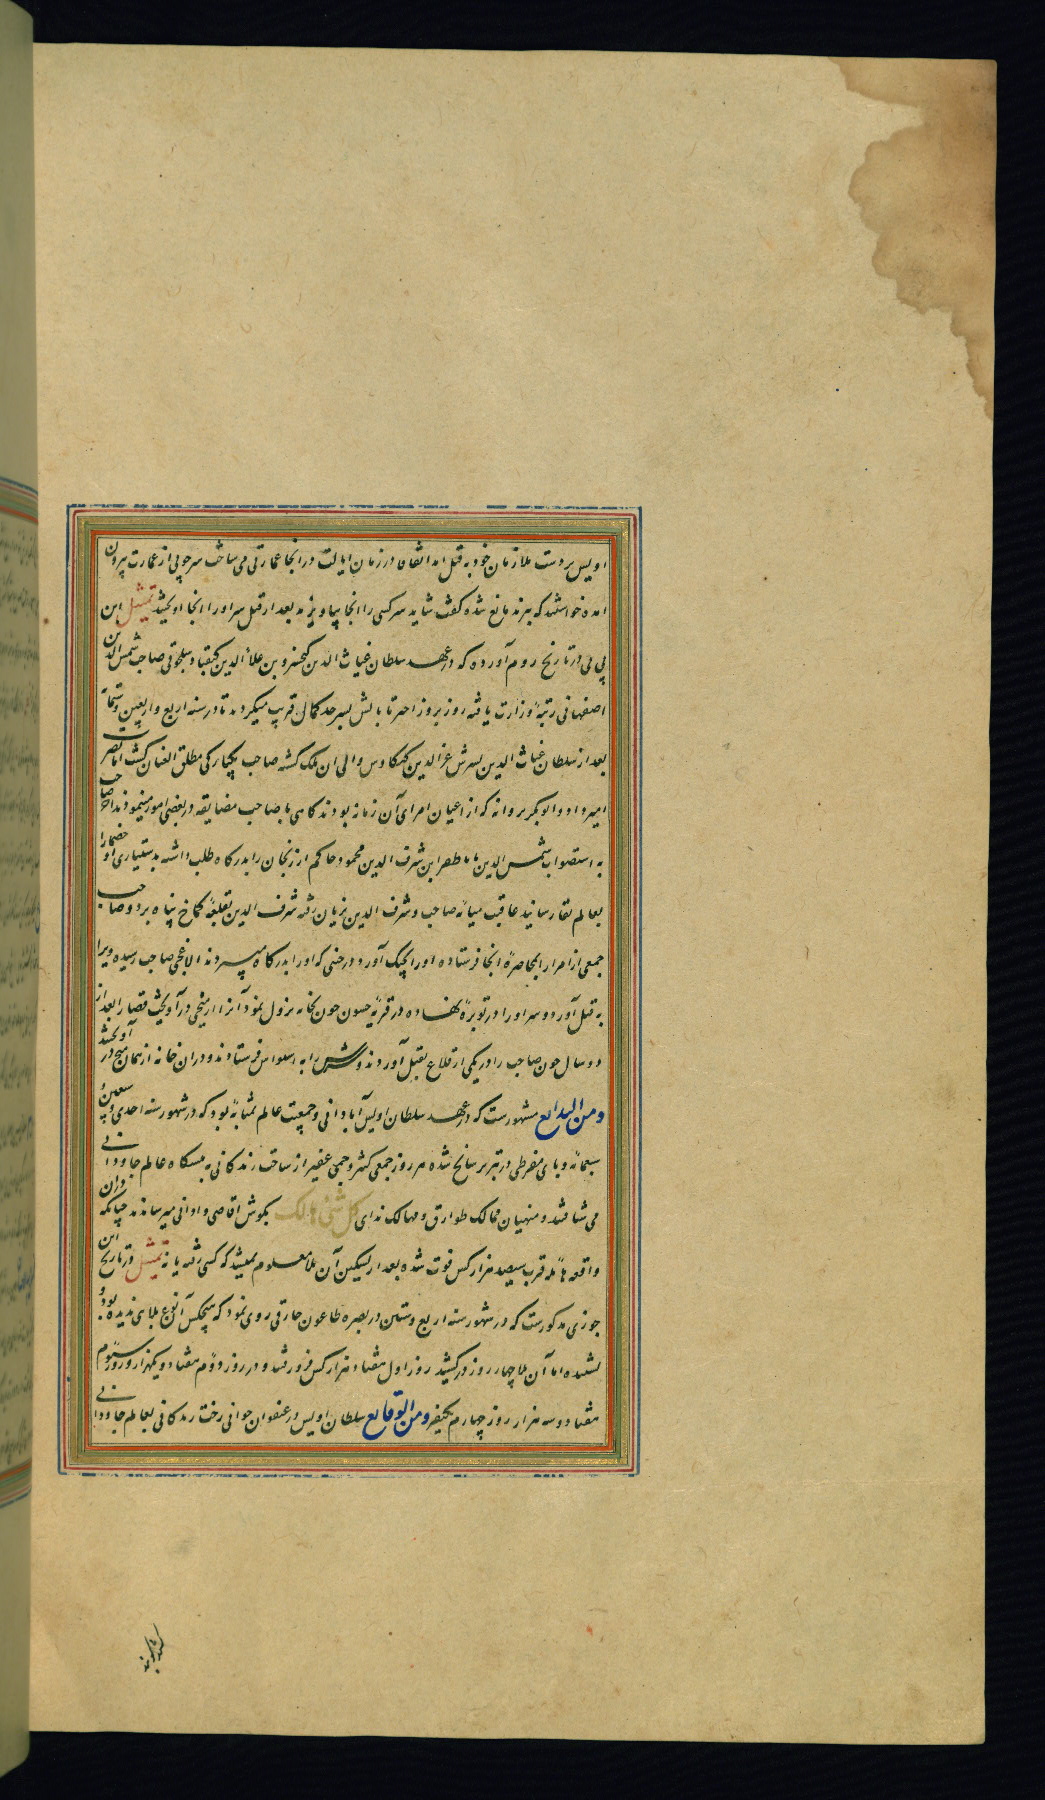 اویس بر دست ملازمان خود به قتل آمد اتفاقا در زمان ایالت در انجا عمارتی می ساخت سر چوبی از عمارت بیرون
امده خواستند که ببرند مانع شده گفت شاید سر کسی را انجا بیاویزند بعد از قتل سر او را انجا اویختند تمثیل ابن
بی بی در تاریخ روم آورده که در عهد سلطان غیاث الدین کیخسرو بن علاء الدین کیقباد سلجوقی صاحب شمس الدین
اصفهانی رتبهٔ وزارت یافته روز بروز اختر تابانش بسرحد کمال قریب میگردید تا در سنه اربع و اربعین و ستمائه
بعد از سلطان غیاث الدین پسرش عز الدین کیکاوس والی ان ملک گشته صاحب یکبارکی مطلق العنان گشت اما نصرت
امیر داد و ابوبکر پروانه که از اعیان امرای آن زمانه بودند کاهی با صاحب مضایقه در بعضی امور مینمودند اخر صاحب
به استصواب شمس الدین بابا طغرا ابن شرف الدین محمود حاکم ارزنجان را بدرکاه طلب داشته بدستیاری او خصما را
بعالم بقا رسانید عاقبت میانه صاحب و شرف الدین بزیان رفته شرف الدین بقلعهٔ کماخ پناه برد و صاحب
جمعی از امرا را بمحاصره انجا فرستاده او را بچنک آورد و در حینی که او را بدرکاه میبردند الاغچی صاحب رسیده ویرا
به قتل آورد و سر او را در توبره نهاده در قریه چون بخانه نزول نمود آنرا از میخی در آویخت قضا را بعد از
دو سال چون صاحب را در یکی از قلاع بقتل آوردند و سرش را به فرستادند و در ان خانه از همان میخ در آویختند
ومن البدایع مشهورست که در عهد سلطان اویس آبادانی و جمعیت عالم بمثابهٔ بود که در شهور سنه احدی و سبعین و
سبعمائه وبای مفرطی در تبریز سانح شده هر روز جمعی کثیر و جمی غفیر از ساحت زندکانی به بنکاه عالم جاودانی
می شتافتند و منهیان ممالک طوارق و مهالک ندای کل شئ هالک بکوش اقاصی و ادانی میرساندند چنانکه در ان
واقعه هایله قرب سیصد هزار کس فوت شده بعد از تسکین آن بلا معلوم نمیشد که کسی رفته یا نه تمثیل در تاریخ ابن
جوزی مذکورست که در شهور سنه اربع و ستین در بصره طاعون جارفی روی نمود که هیچکس آن نوع بلایی ندیده بود و
نشنیده اما آن بلا چهار روز در کشید روز اول هفتاد هزار کس فرو رفتند و در روز دوم هفتاد و یکهزار و روز سیوم
هفتاد و سه هزار روز چهارم یکنفر ومن الوقایع سلطان اویس در عنفوان جوانی رخت زندکانی بعالم جاودانی